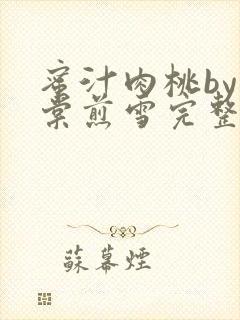 蜜汁肉桃by
棠煎雪完整
蘇幕煙